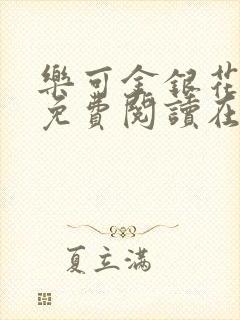 樂可金銀花
免費閱讀在
夏立滿